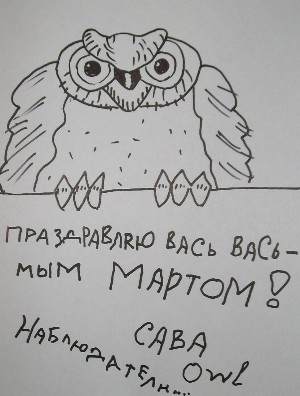 ПРАЗДРАВЛЯЮ ВАСЬ ВАСЬ-
МЫМ МАРТОМ!
САВА
Owl
НАБЛЮДАТЕЛЬН...